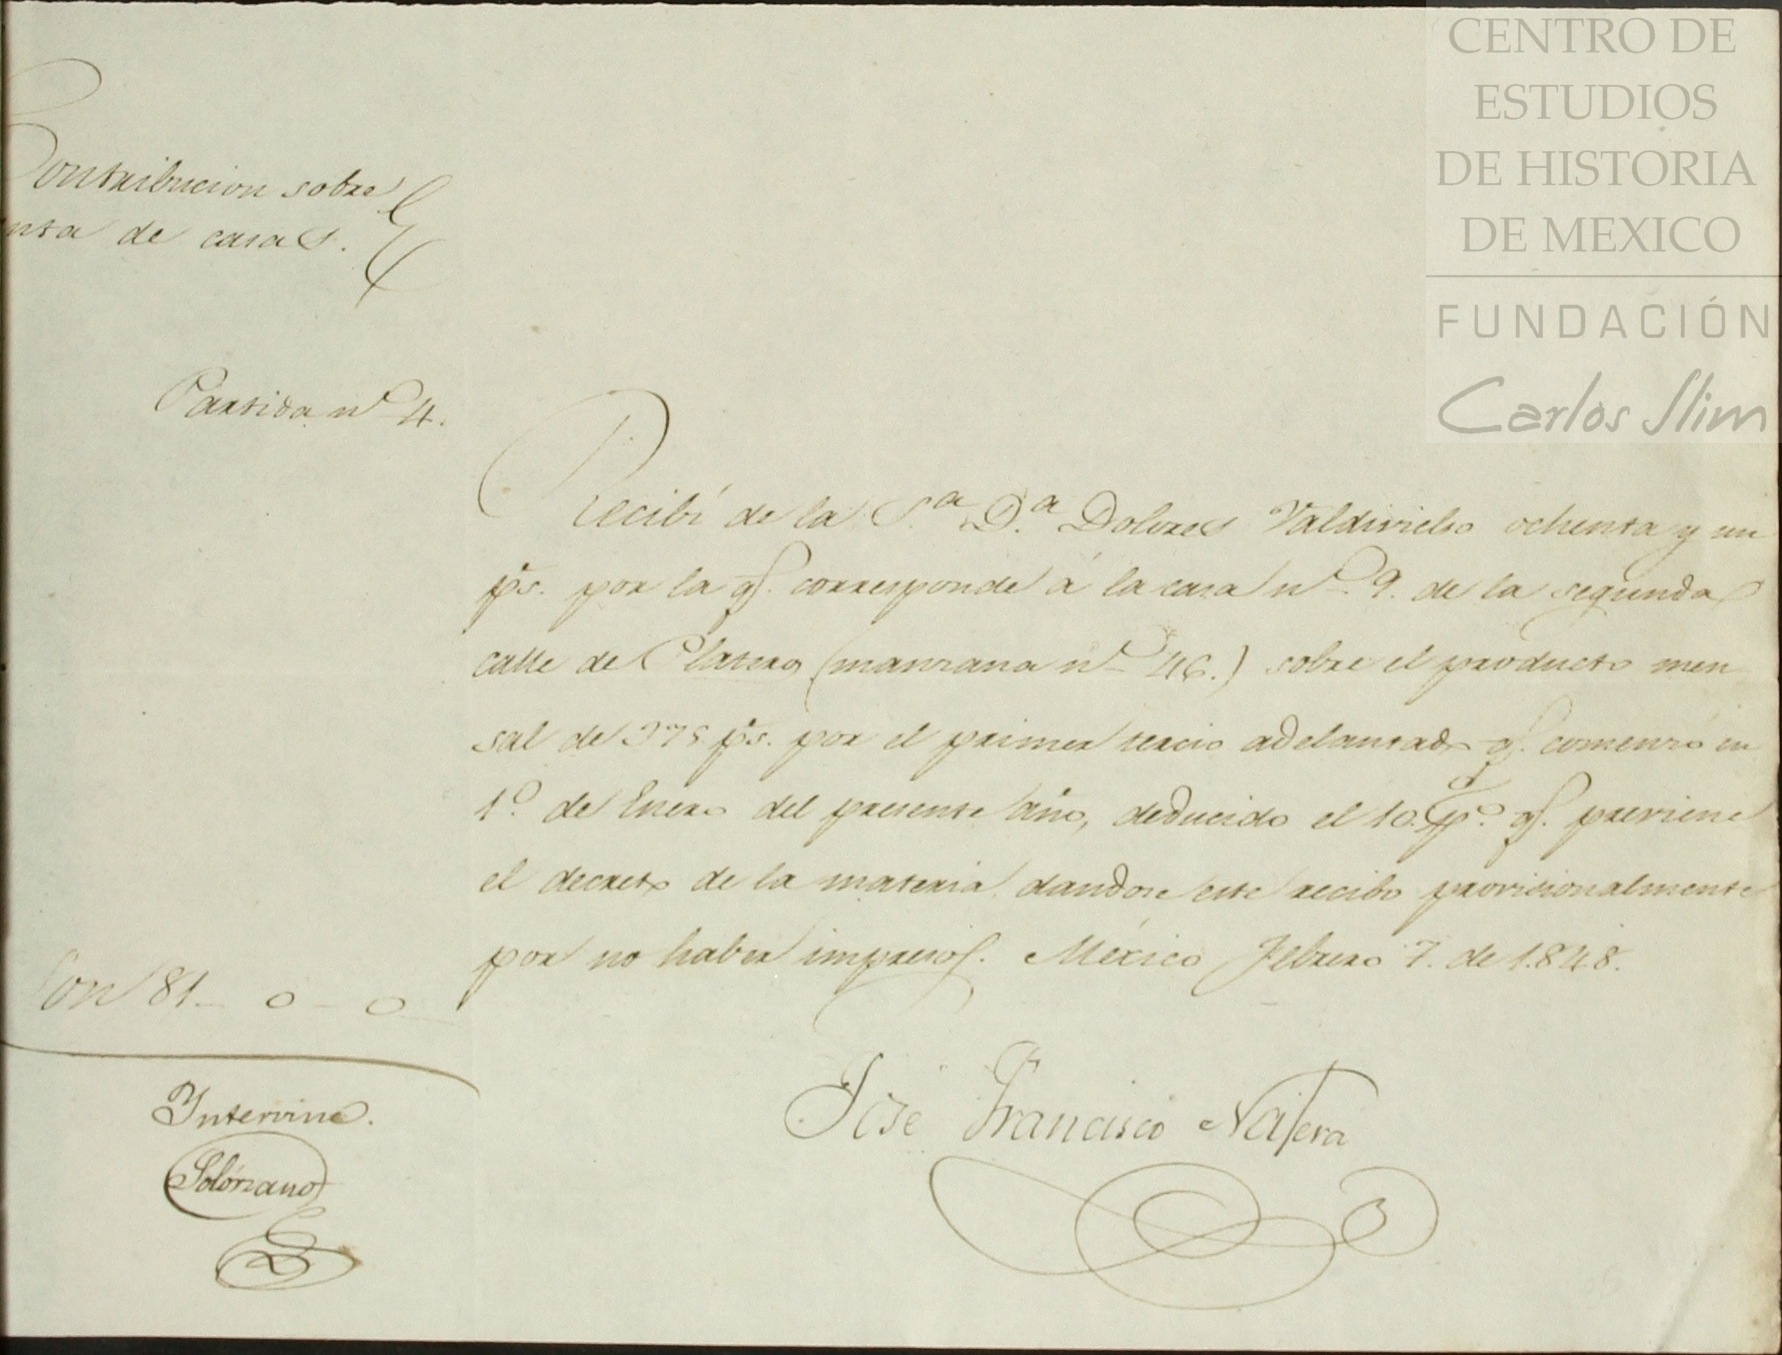 CENTRO DE
ESTUDIOS
DE HISTORIA
DE MEXICO
FUNDACIÓN
Carlos Slim
Contribucion sobre
nta de casas.
Partida nº 4.
Recibí de la S.ª D.ª Dolores Valdivielso ochenta y un
ps. por la q. corresponde á la casa nº 9. de la segunda
calle de Plateros (manzana nº 46.) sobre el producto men
sal de 375 ps. por el primer tercio adelantado q. comenzó en
1º. de Enero del presente año, deducido el 10 p. q. previene
el decreto de la materia, dandose este recibo provisionalmente
por no haber impresos. México Febrero 7. de 1.848.
Son 81 - 0 - 0
José Francisco Nájera
Intervine.
Solórzano